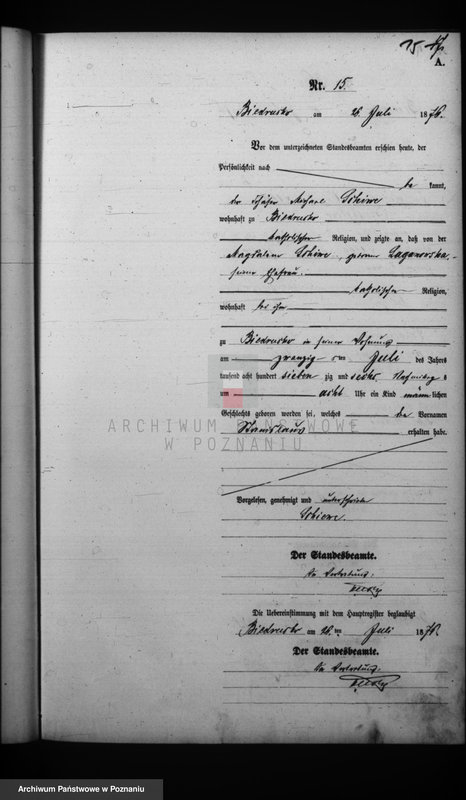 A.
Nr. 15.
Biedrusko am 26. Juli 1876.
Vor dem unterzeichneten Standesbeamten erschien heute, der
Persönlichkeit nach
be kannt,
der Schäfer Michael
wohnhaft zu Biedrusko
katholischer Religion, und zeigte an, daß von der
Magdalena geborne
seiner Ehefrau
katholischer Religion,
wohnhaft bei ihm
zu Biedrusko in seiner Wohnung
am zwanzig ten Juli des Jahres
tausend acht hundert sieben zig und sechs Nachmittags
um acht Uhr ein Kind männ lichen
Geschlechts geboren worden sei, welches die Vornamen
Stanislaus
erhalten habe.
Vorgelesen, genehmigt und unterschrieben
Der Standesbeamte.
In Vertretung:
Die Uebereinstimmung mit dem Hauptregister beglaubigt
Biedrusko am 26. ten Juli 1876.
Der Standesbeamte.
In Vertretung:
ARCHIWUM PAŃSTWOWE
W POZNANIU
Archiwum Państwowe w Poznaniu